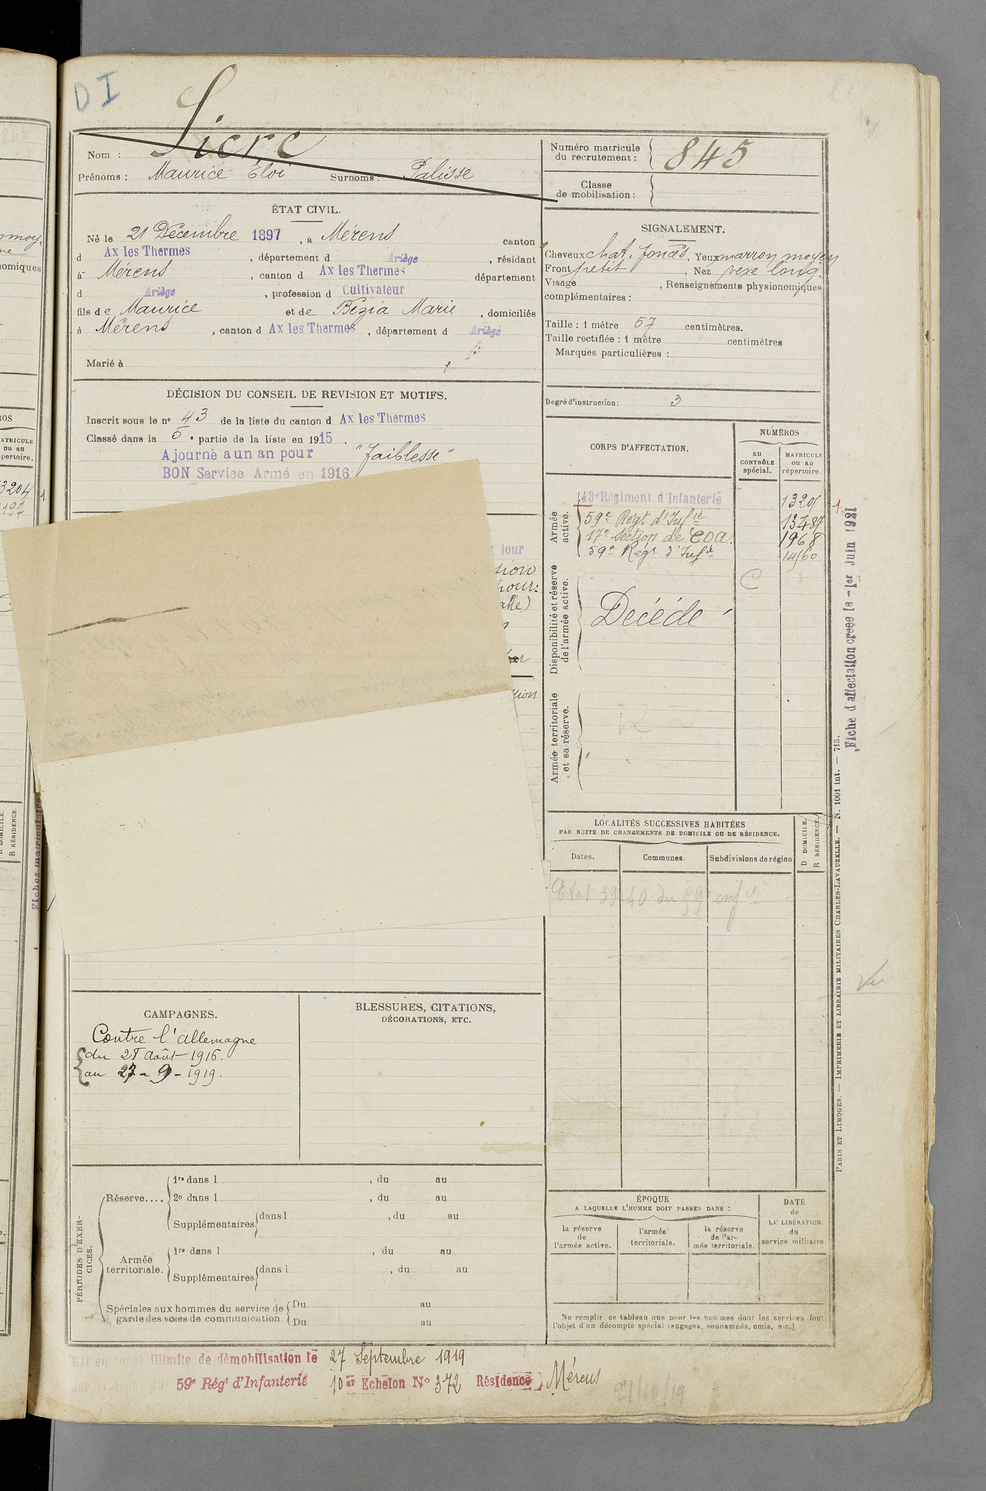 DI
Nom : Sicre
Prénoms : Maurice Éloi Surnoms : Palisse
Numéro matricule du recrutement : 845
Classe de mobilisation :
ÉTAT CIVIL.
Né le 21 Décembre 1897, à Mérens canton
d Ax les Thermes, département d Ariège, résidant
à Mérens, canton d Ax les Thermes département
d Ariège, profession d Cultivateur
fils de Maurice et de Bézia Marie, domiciliés
à Mérens, canton d Ax les Thermes, département d Ariège
Marié à
SIGNALEMENT.
Cheveux chat. foncé, Yeux marron moyen
Front petit, Nez rect. long.
Visage , Renseignements physionomiques
complémentaires :
Taille : 1 mètre 57 centimètres.
Taille rectifiée : 1 mètre centimètres
Marques particulières :
Degré d'instruction : 3
DÉCISION DU CONSEIL DE REVISION ET MOTIFS.
Inscrit sous le n° 43 de la liste du canton d Ax les Thermes
Classé dans la 5e partie de la liste en 1915.
Ajourné a un an pour "faiblesse"
BON Service Armé en 1916
CORPS D'AFFECTATION.
NUMÉROS
au CONTRÔLE spécial.
MATRICULE ou au répertoire.
Armée active.
143e Régiment d'Infanterie
59e Régt d'Infie
17e Section de COA. 1968
59e Régt d'Infie
jour
Disponibilité et réserve de l'armée active.
Décédé
C
Armée territoriale et sa réserve.
LOCALITÉS SUCCESSIVES HABITÉES
PAR SUITE DE CHANGEMENTS DE DOMICILE OU DE RÉSIDENCE.
Dates.
Communes.
Subdivisions de région
D DOMICILE.
R RÉSIDENCE.
Fiche d'affectation créée le 1er Juin 1921
PARIS ET LIMOGES. — IMPRIMERIE ET LIBRAIRIE MILITAIRES CHARLES-LAVAUZELLE. — N. 1001 int. — 715.
Vu
CAMPAGNES.
Contre l'allemagne
du 28 Août 1916
au 27-9-1919.
BLESSURES, CITATIONS,
DÉCORATIONS, ETC.
PÉRIODES D'EXERCICES.
Réserve....
1re dans l , du au
2e dans l , du au
Supplémentaires dans l , du au
Armée territoriale.
1re dans l , du au
Supplémentaires dans l , du au
Spéciales aux hommes du service de garde des voies de communication
Du au
Du au
ÉPOQUE
A LAQUELLE L'HOMME DOIT PASSER DANS :
la réserve de l'armée active.
l'armée territoriale.
la réserve de l'armée territoriale.
DATE de LA LIBÉRATION du service militaire
Ne remplir ce tableau que pour les hommes dont les services font
l'objet d'un décompte spécial (engagés, condamnés, omis, etc.)
Mis en congé illimité de démobilisation le 27 Septembre 1919
59e Régt d'Infanterie 10e Echelon N° 372 Résidence Mérens